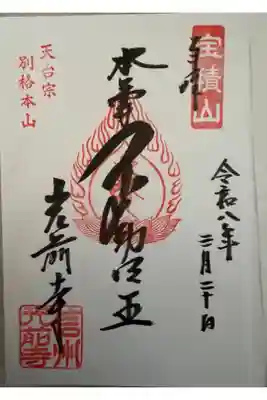 宝積山
奉拝
令和八年
三月二十日
本尊不動明王
天台宗
別格本山
光前寺
信州
光前寺